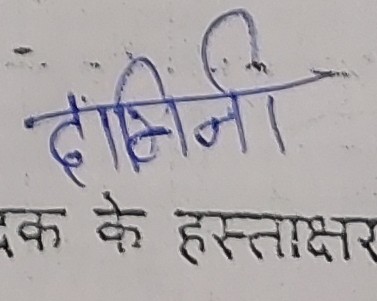 दामिनी
दक के हस्ताक्षर